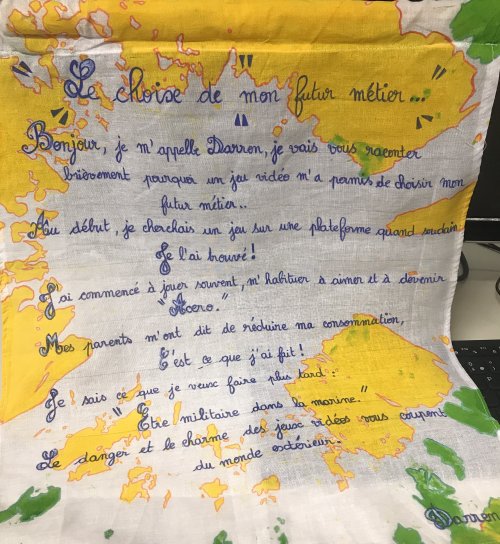 "Le choise de mon futur métier..."
"
Bonjour, je m'appelle Darren, je vais vous raconter
brièvement pourquoi un jeu vidéo m'a permis de choisir mon
futur métier..
Au début, je cherchais un jeu sur une plateforme quand soudain
Je l'ai trouvé!
J'ai commencé à jouer souvent, m'habituer à aimer et à devenir
"Accro."
Mes parents m'ont dit de réduire ma consommation,
C'est ce que j'ai fait!
Je sais ce que je veux faire plus tard :
"Etre militaire dans la marine."
Le danger et le charme des jeux vidéos vous coupent
du monde extérieur.
Darren